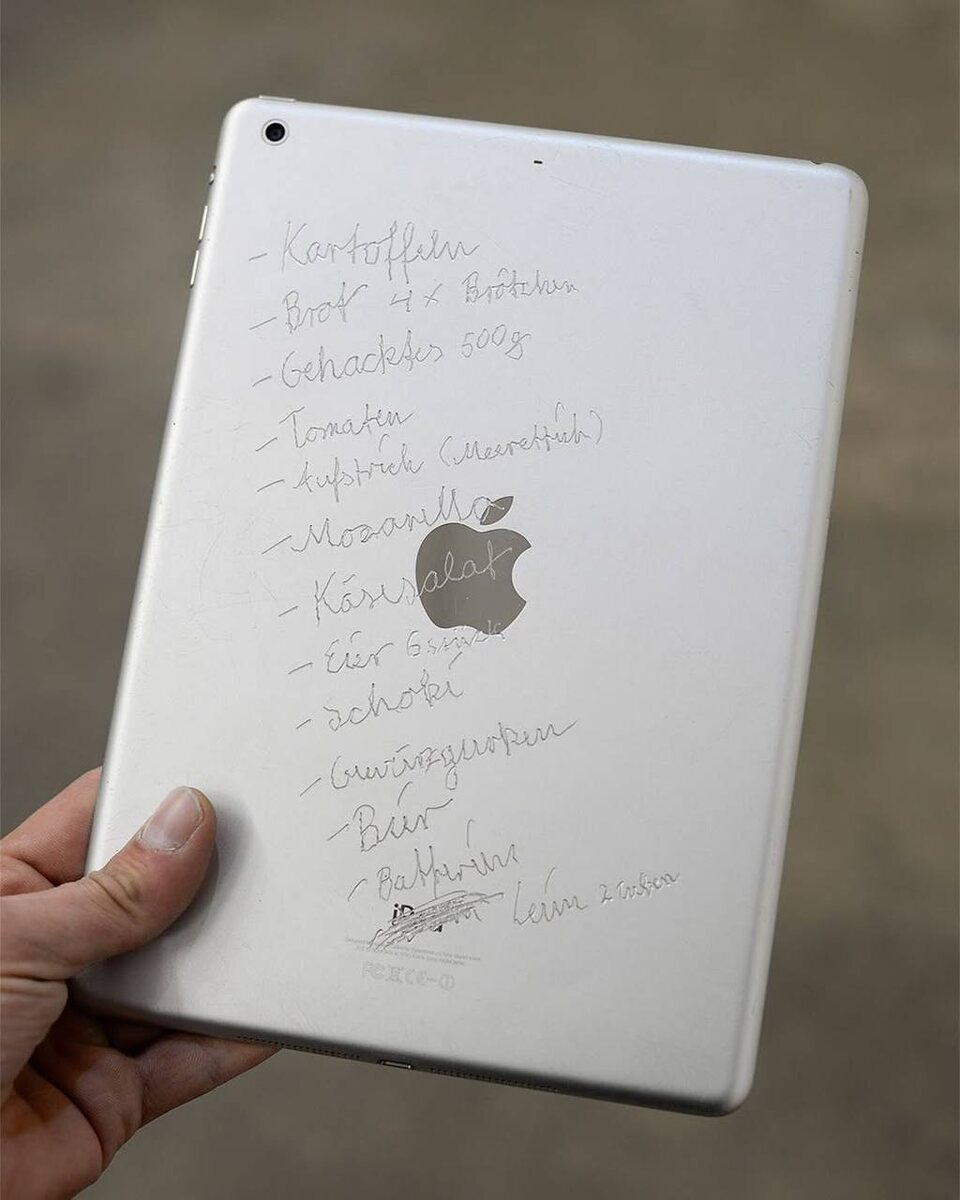 - Kartoffeln
- Brot 4x Brötchen
- Gehacktes 500g
- Tomaten
- Aufstrich (Meerettich)
- Mozarella
- Käsesalat
- Eier 6 stück
- Schoki
- Gewürzgurken
- Bier
- Batterien
Leim 2 Tuben
FC CE